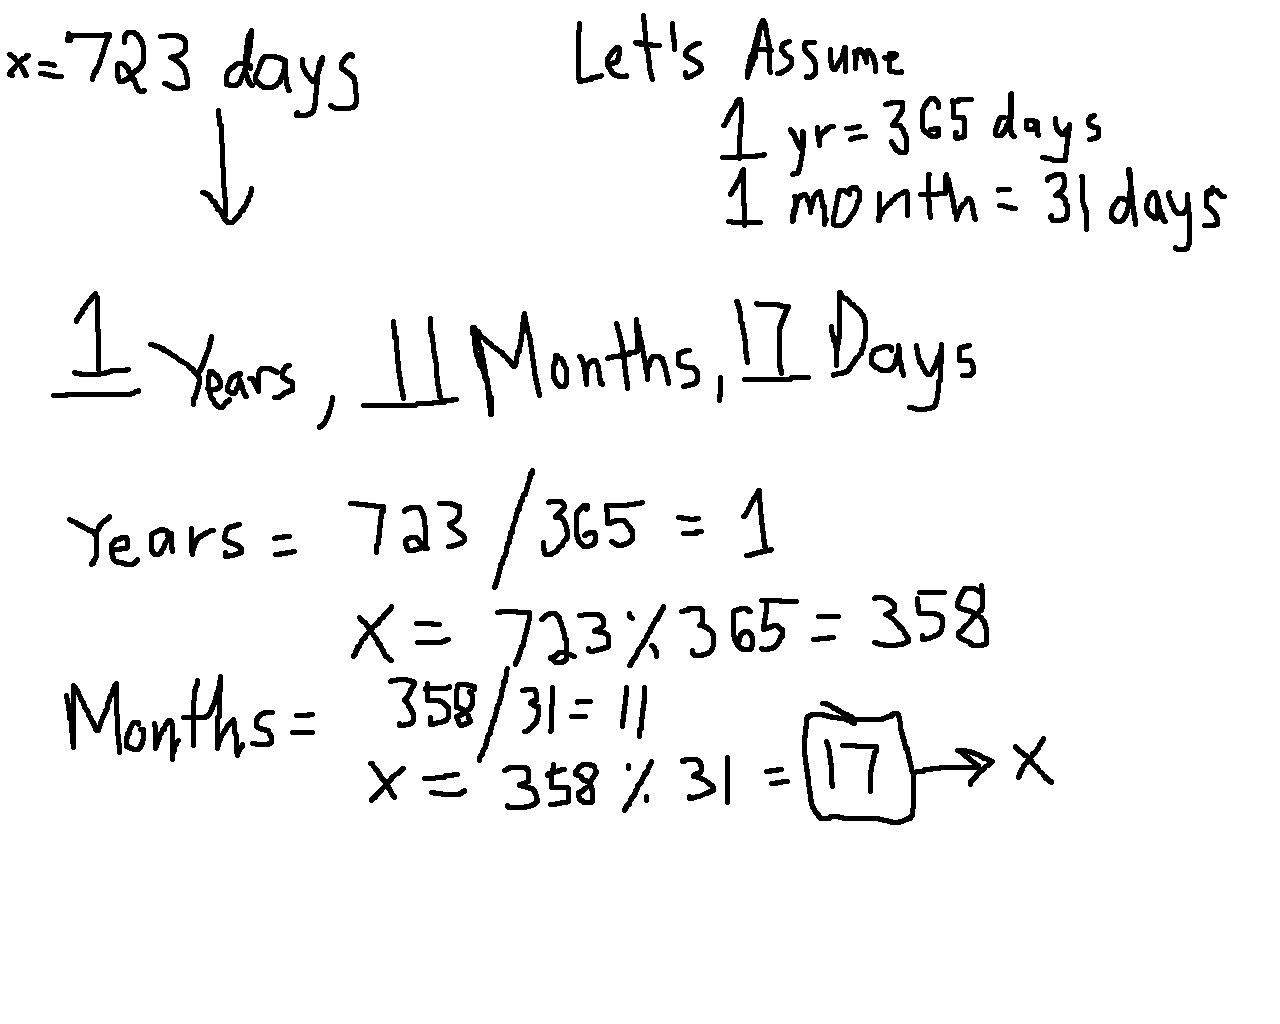 x=723 days
Let's Assume
1 yr=365 days
1 month = 31 days
1 Years, 11 Months, 17 Days
Years = 723 / 365 = 1
x = 723 % 365 = 358
Months = 358/31=11
x = 358 % 31 = 17 → x